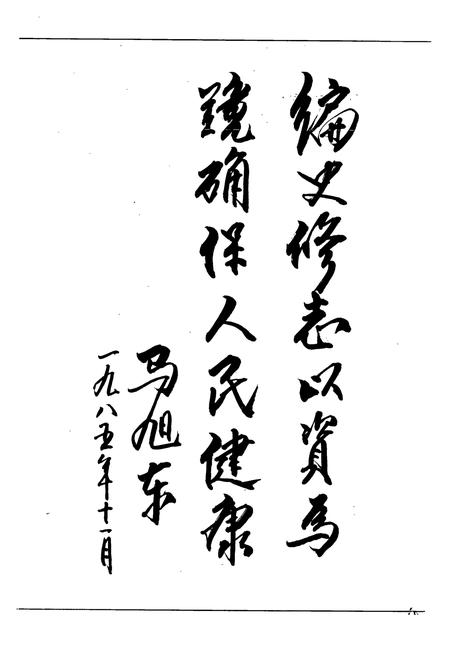 编史修志以資為
鏡确保人民健康
马旭东
一九八五年十一月